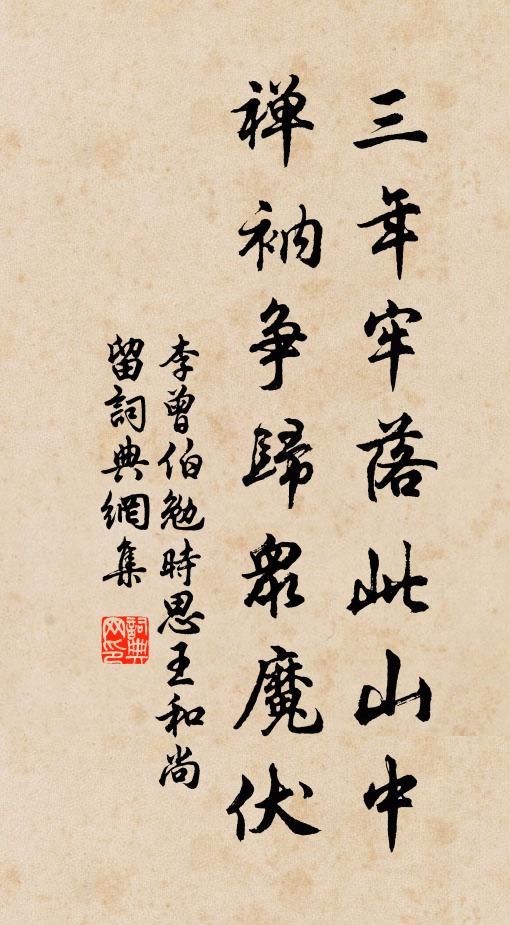 三年牢落此山中
禅衲争歸眾魔伏
李曾伯勉時思王和尚
留詞典網集
詞典网印